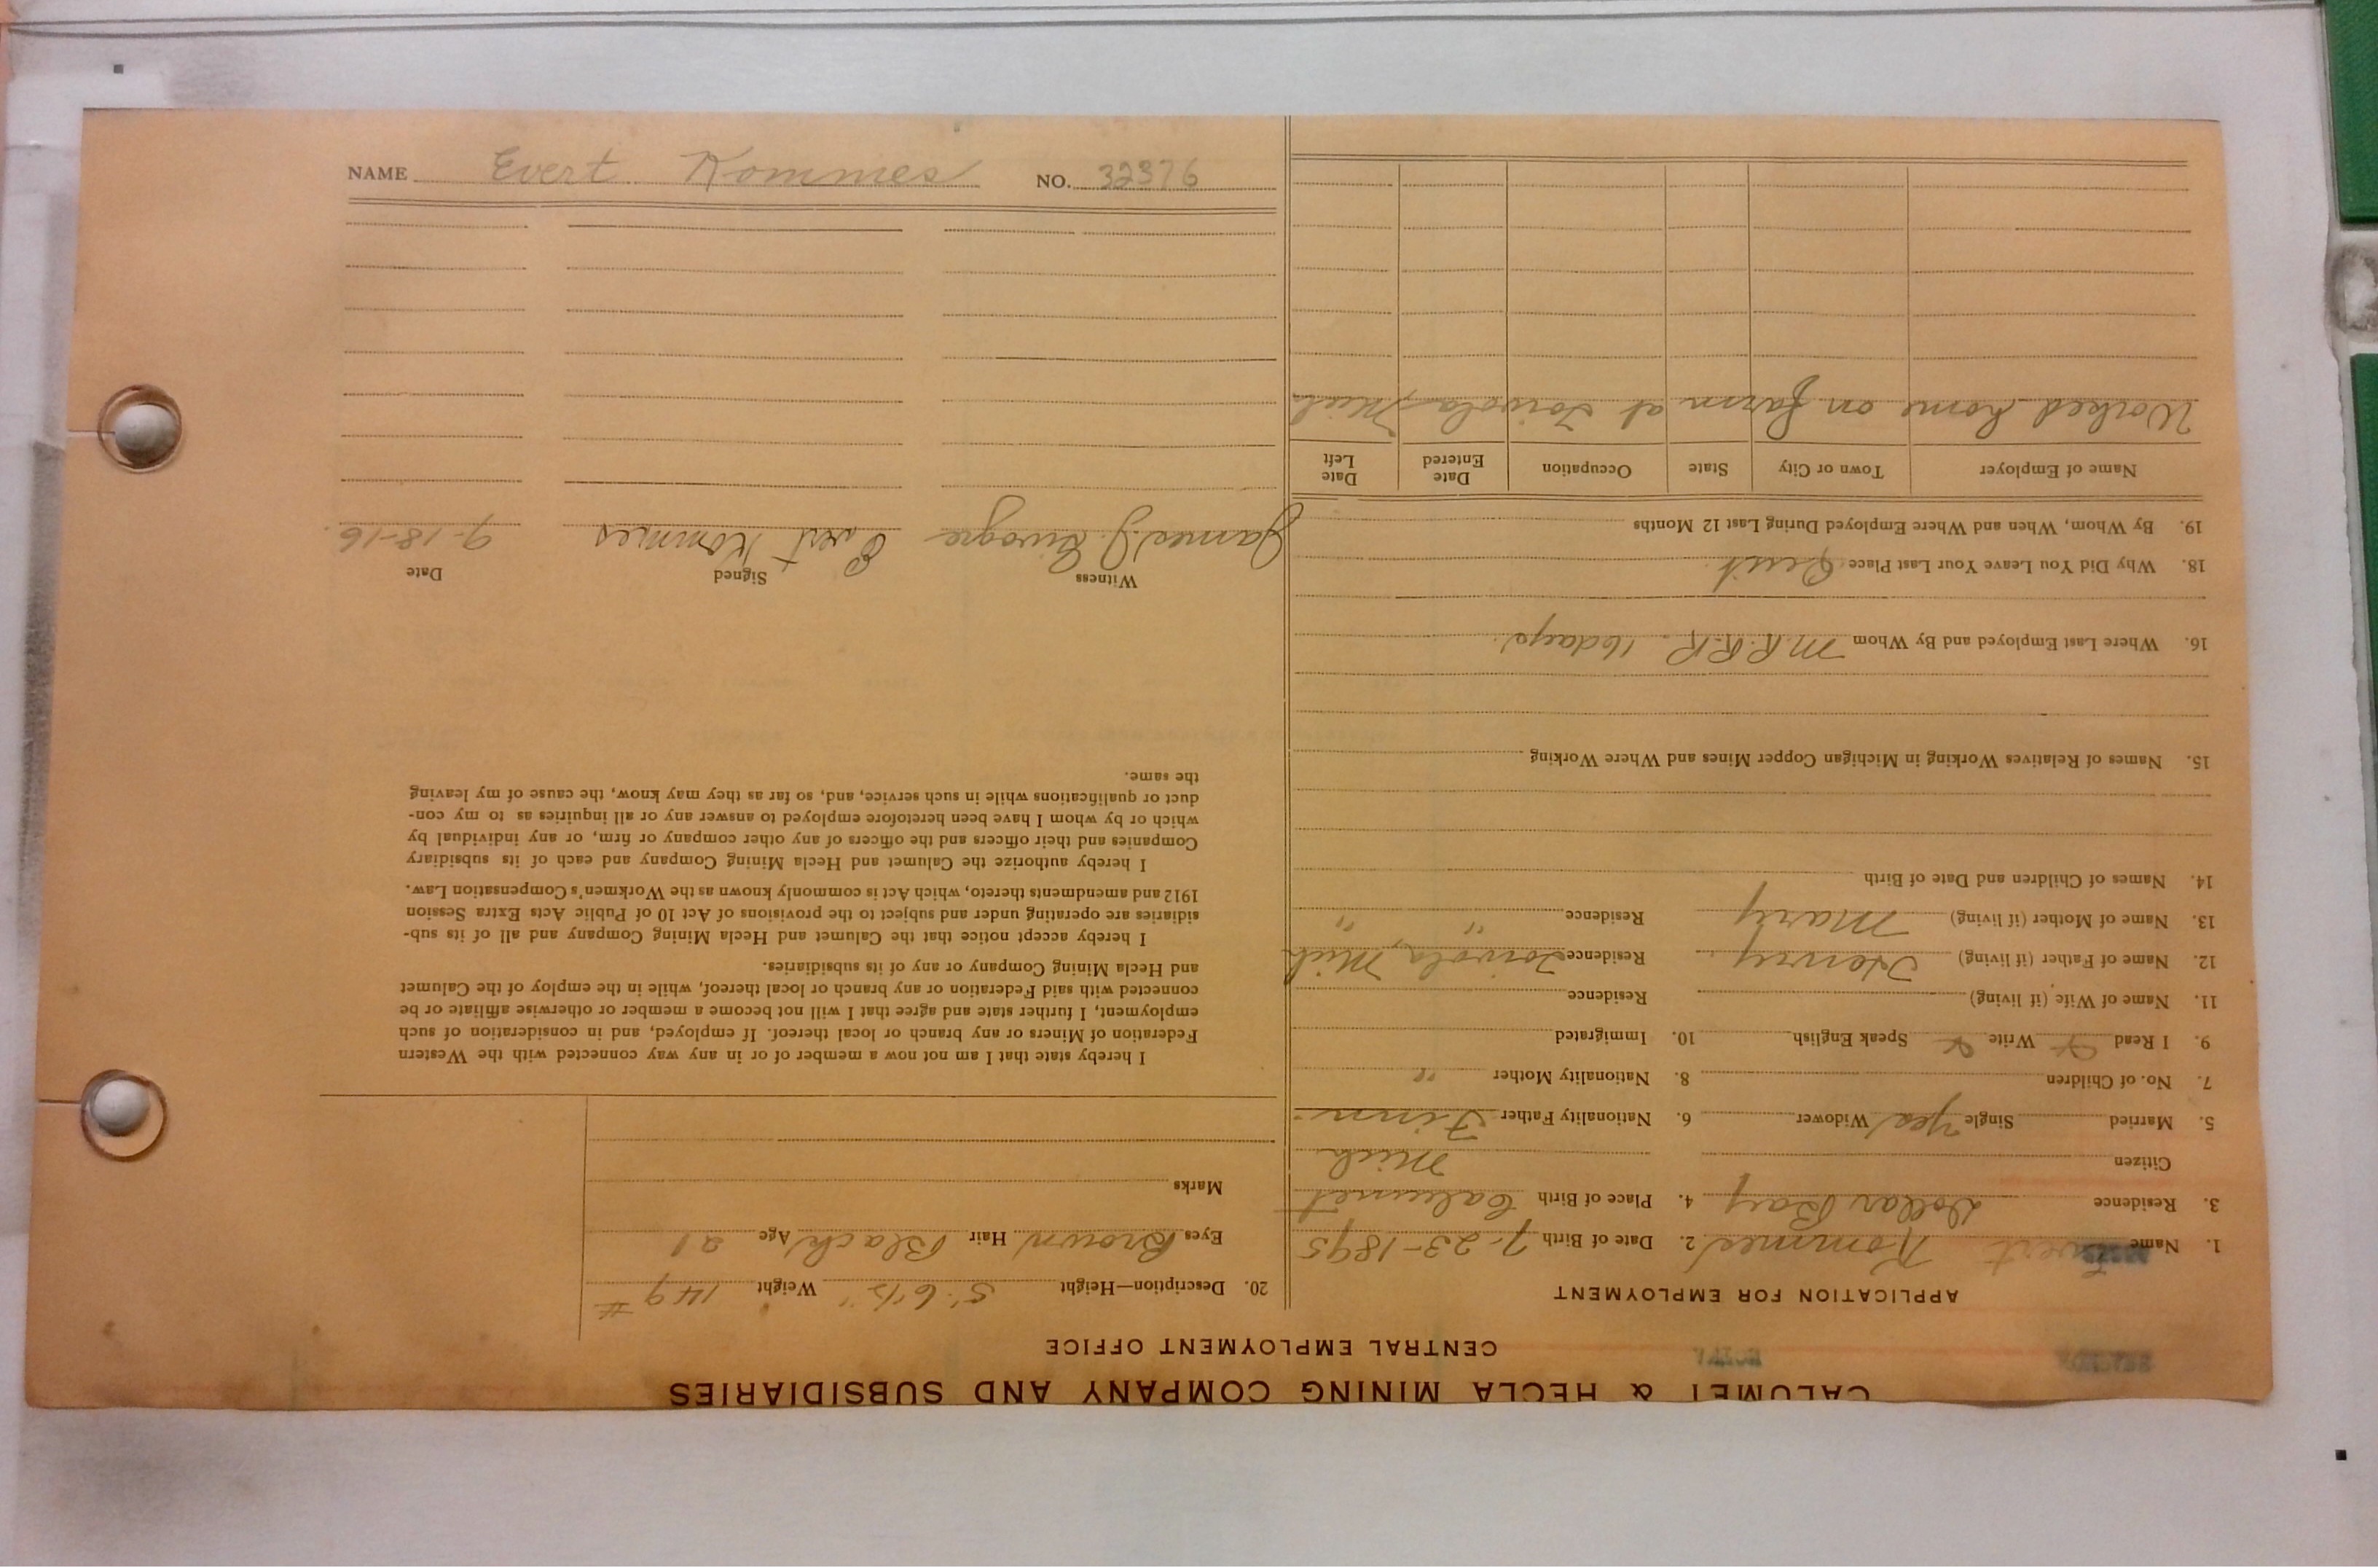 CALUMET & HECLA MINING COMPANY AND SUBSIDIARIES
CENTRAL EMPLOYMENT OFFICE
APPLICATION FOR EMPLOYMENT
1. Name Evert Kommes 2. Date of Birth 7-23-1895
3. Residence Dollar Bay 4. Place of Birth Calumet
Citizen Mich
5. Married Single Yes Widower 6. Nationality Father Finn
7. No. of Children 8. Nationality Mother "
9. I Read Write Speak English 10. Immigrated
11. Name of Wife (if living) Residence
12. Name of Father (if living) Henry Residence Toivola, Mich
13. Name of Mother (if living) Mary Residence " "
14. Names of Children and Date of Birth
15. Names of Relatives Working in Michigan Copper Mines and Where Working
16. Where Last Employed and By Whom M.R.R.R. 16 days.
18. Why Did You Leave Your Last Place Quit
19. By Whom, When and Where Employed During Last 12 Months
Name of Employer Town or City State Occupation Date Entered Date Left
Worked home on farm at Toivola, Mich
20. Description—Height 5' 6 1/2" Weight 149 #
Eyes Brown Hair Black Age 21
Marks
I hereby state that I am not now a member of or in any way connected with the Western
Federation of Miners or any branch or local thereof. If employed, and in consideration of such
employment, I further state and agree that I will not become a member or otherwise affiliate or be
connected with said Federation or any branch or local thereof, while in the employ of the Calumet
and Hecla Mining Company or any of its subsidiaries.
I hereby accept notice that the Calumet and Hecla Mining Company and all of its sub-
sidiaries are operating under and subject to the provisions of Act 10 of Public Acts Extra Session
1912 and amendments thereto, which Act is commonly known as the Workmen's Compensation Law.
I hereby authorize the Calumet and Hecla Mining Company and each of its subsidiary
Companies and their officers and the officers of any other company or firm, or any individual by
which or by whom I have been heretofore employed to answer any or all inquiries as to my con-
duct or qualifications while in such service, and, so far as they may know, the cause of my leaving
the same.
Witness Signed Date
James J. Evert Kommes 9-18-16.
NAME Evert Kommes NO. 32376